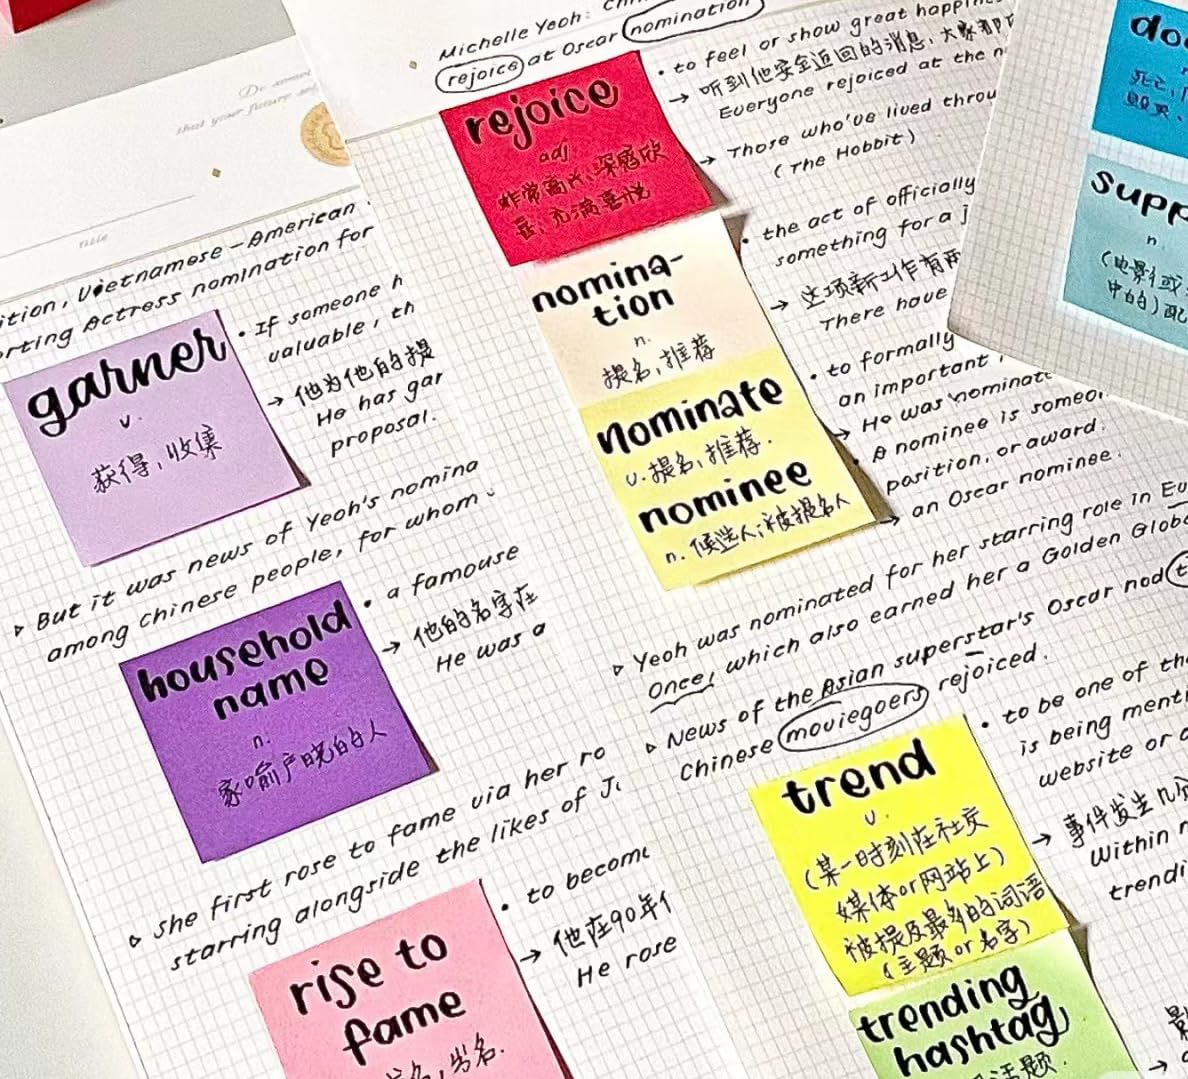 Michelle Yeoh:
rejoice at Oscar nomination
rejoice
adj
非常高兴、深感欣
喜,充满喜悦
• to feel or show great
→ 听到他安全返回的消息,大家都
Everyone rejoiced at the
→ Those who've lived
(The Hobbit)
nomina-
tion
n.
提名,推荐
• the act of officially
something for a
→ 这项新工作有两
There have
nominate
v. 提名,推荐.
nominee
n. 候选人;被提名人
• to formally
an important
→ He was nominate
• A nominee is
position, or award.
→ an Oscar nominee.
▷ Yeoh was nominated for her starring role in
Once, which also earned her a Golden
▷ News of the Asian superstar's Oscar nod
Chinese moviegoers rejoiced.
trend
v.
(某一时刻在社交
媒体or网站上)
被提及最多的词语
(主题or名字)
• to be one of
is being
website or
→ 事件发生几分
Within
trendi
trending
hashtag
话题.
→
Title
ition, Vietnamese-American
rting Actress nomination for
garner
v.
获得,收集
• If someone
valuable,
→ 他为他的提
He has gar
proposal.
▷ But it was news of Yeoh's nomina
among chinese people, for whom
household
name
n.
家喻户晓的人
• a famouse
→ 他的名字在
He was a
▷ she first rose to fame via her ro
starring alongside the likes of
rise to
fame
名,出名.
• to become
→ 他在90年代
He rose
supp
n.
(电影或
中的)配
死亡,
毁灭、